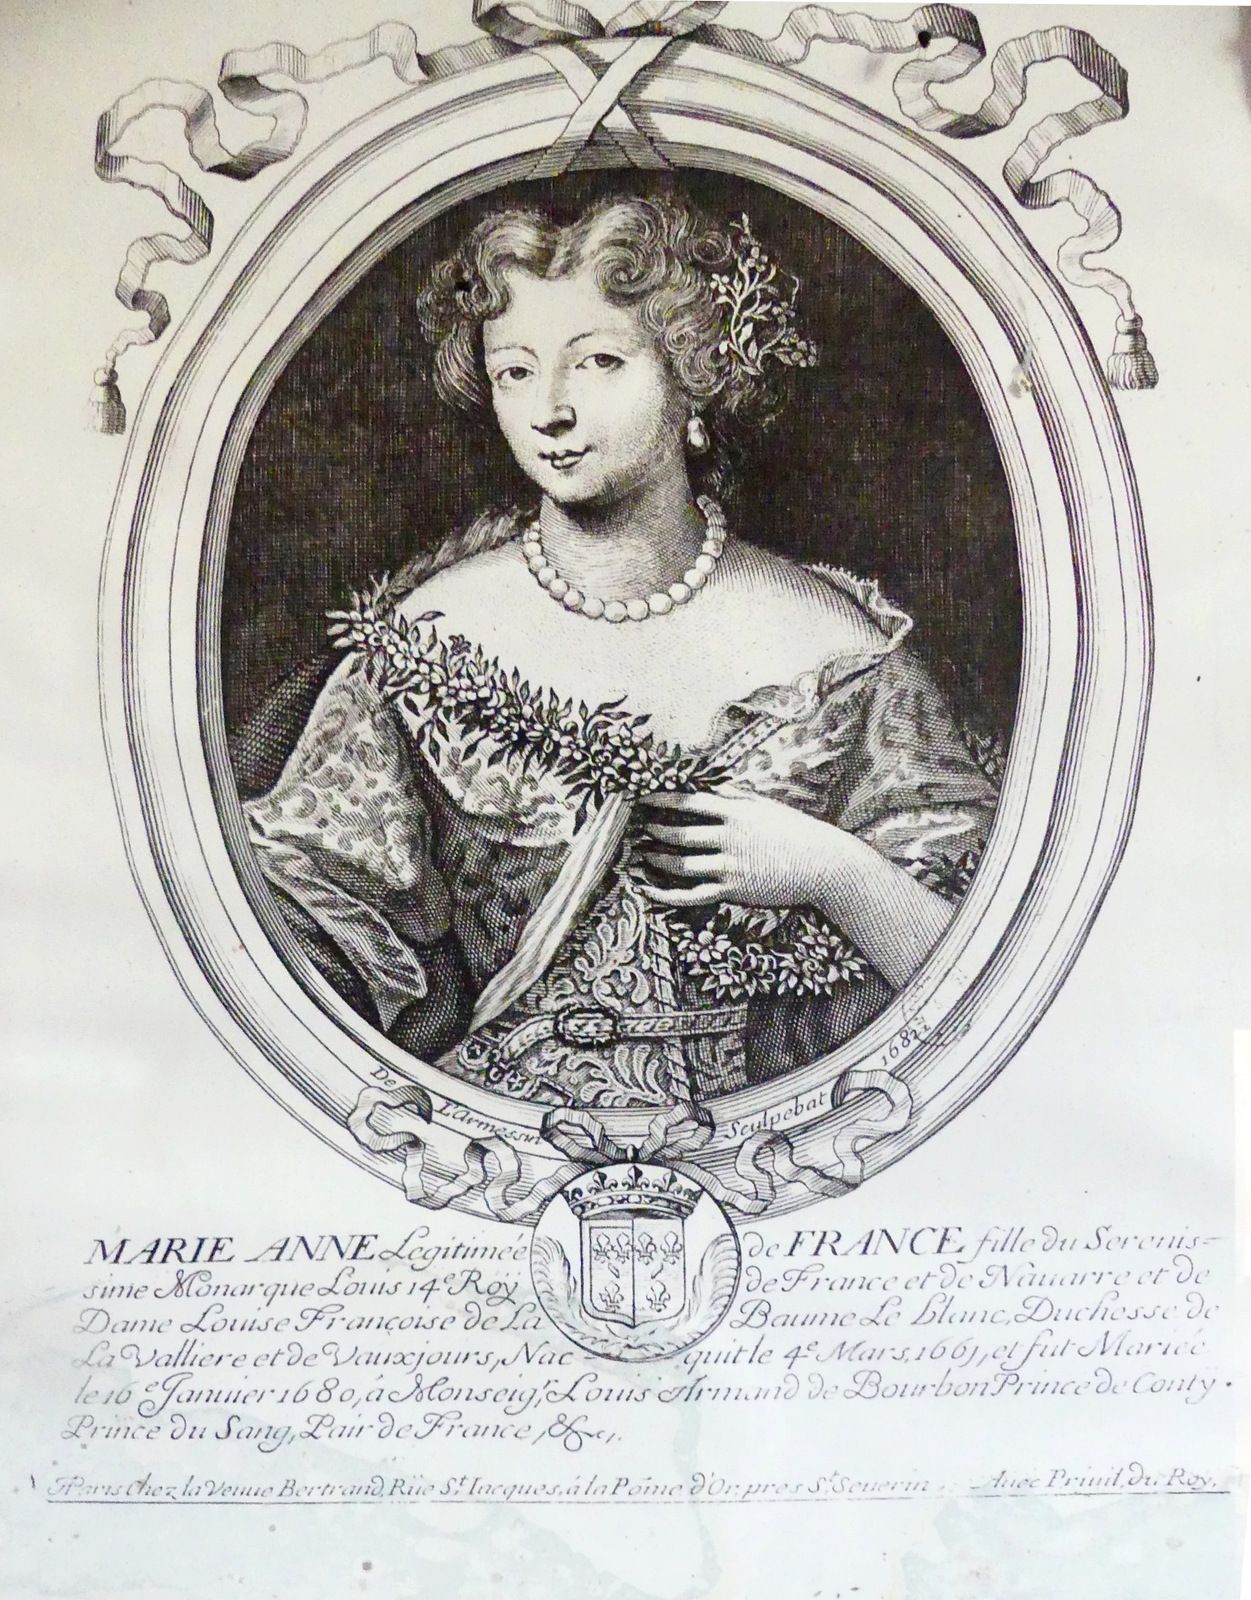 De L'Armessin Sculpebat 1682
MARIE ANNE Legitimeé de FRANCE, fille du Serenis=
sime Monarque Louis 14e Roÿ de France et de Nauarre et de
Dame Louise Françoise de La Baume Le blanc, Duchesse de
La Valliere et de Vauxjours, Nacquit le 4e Mars, 1661, et fut Marieé
le 16e Januier 1680, á Monseigr, Louis Armand de Bourbon Prince de Conty.
Prince du Sang, Pair de France, &c,.
AParis Chez la Veuue Bertrand, Rüe St. Iacques, á la Pom̃e d'Or, pres St. Seuerin . Auec Priuil, du Roy,